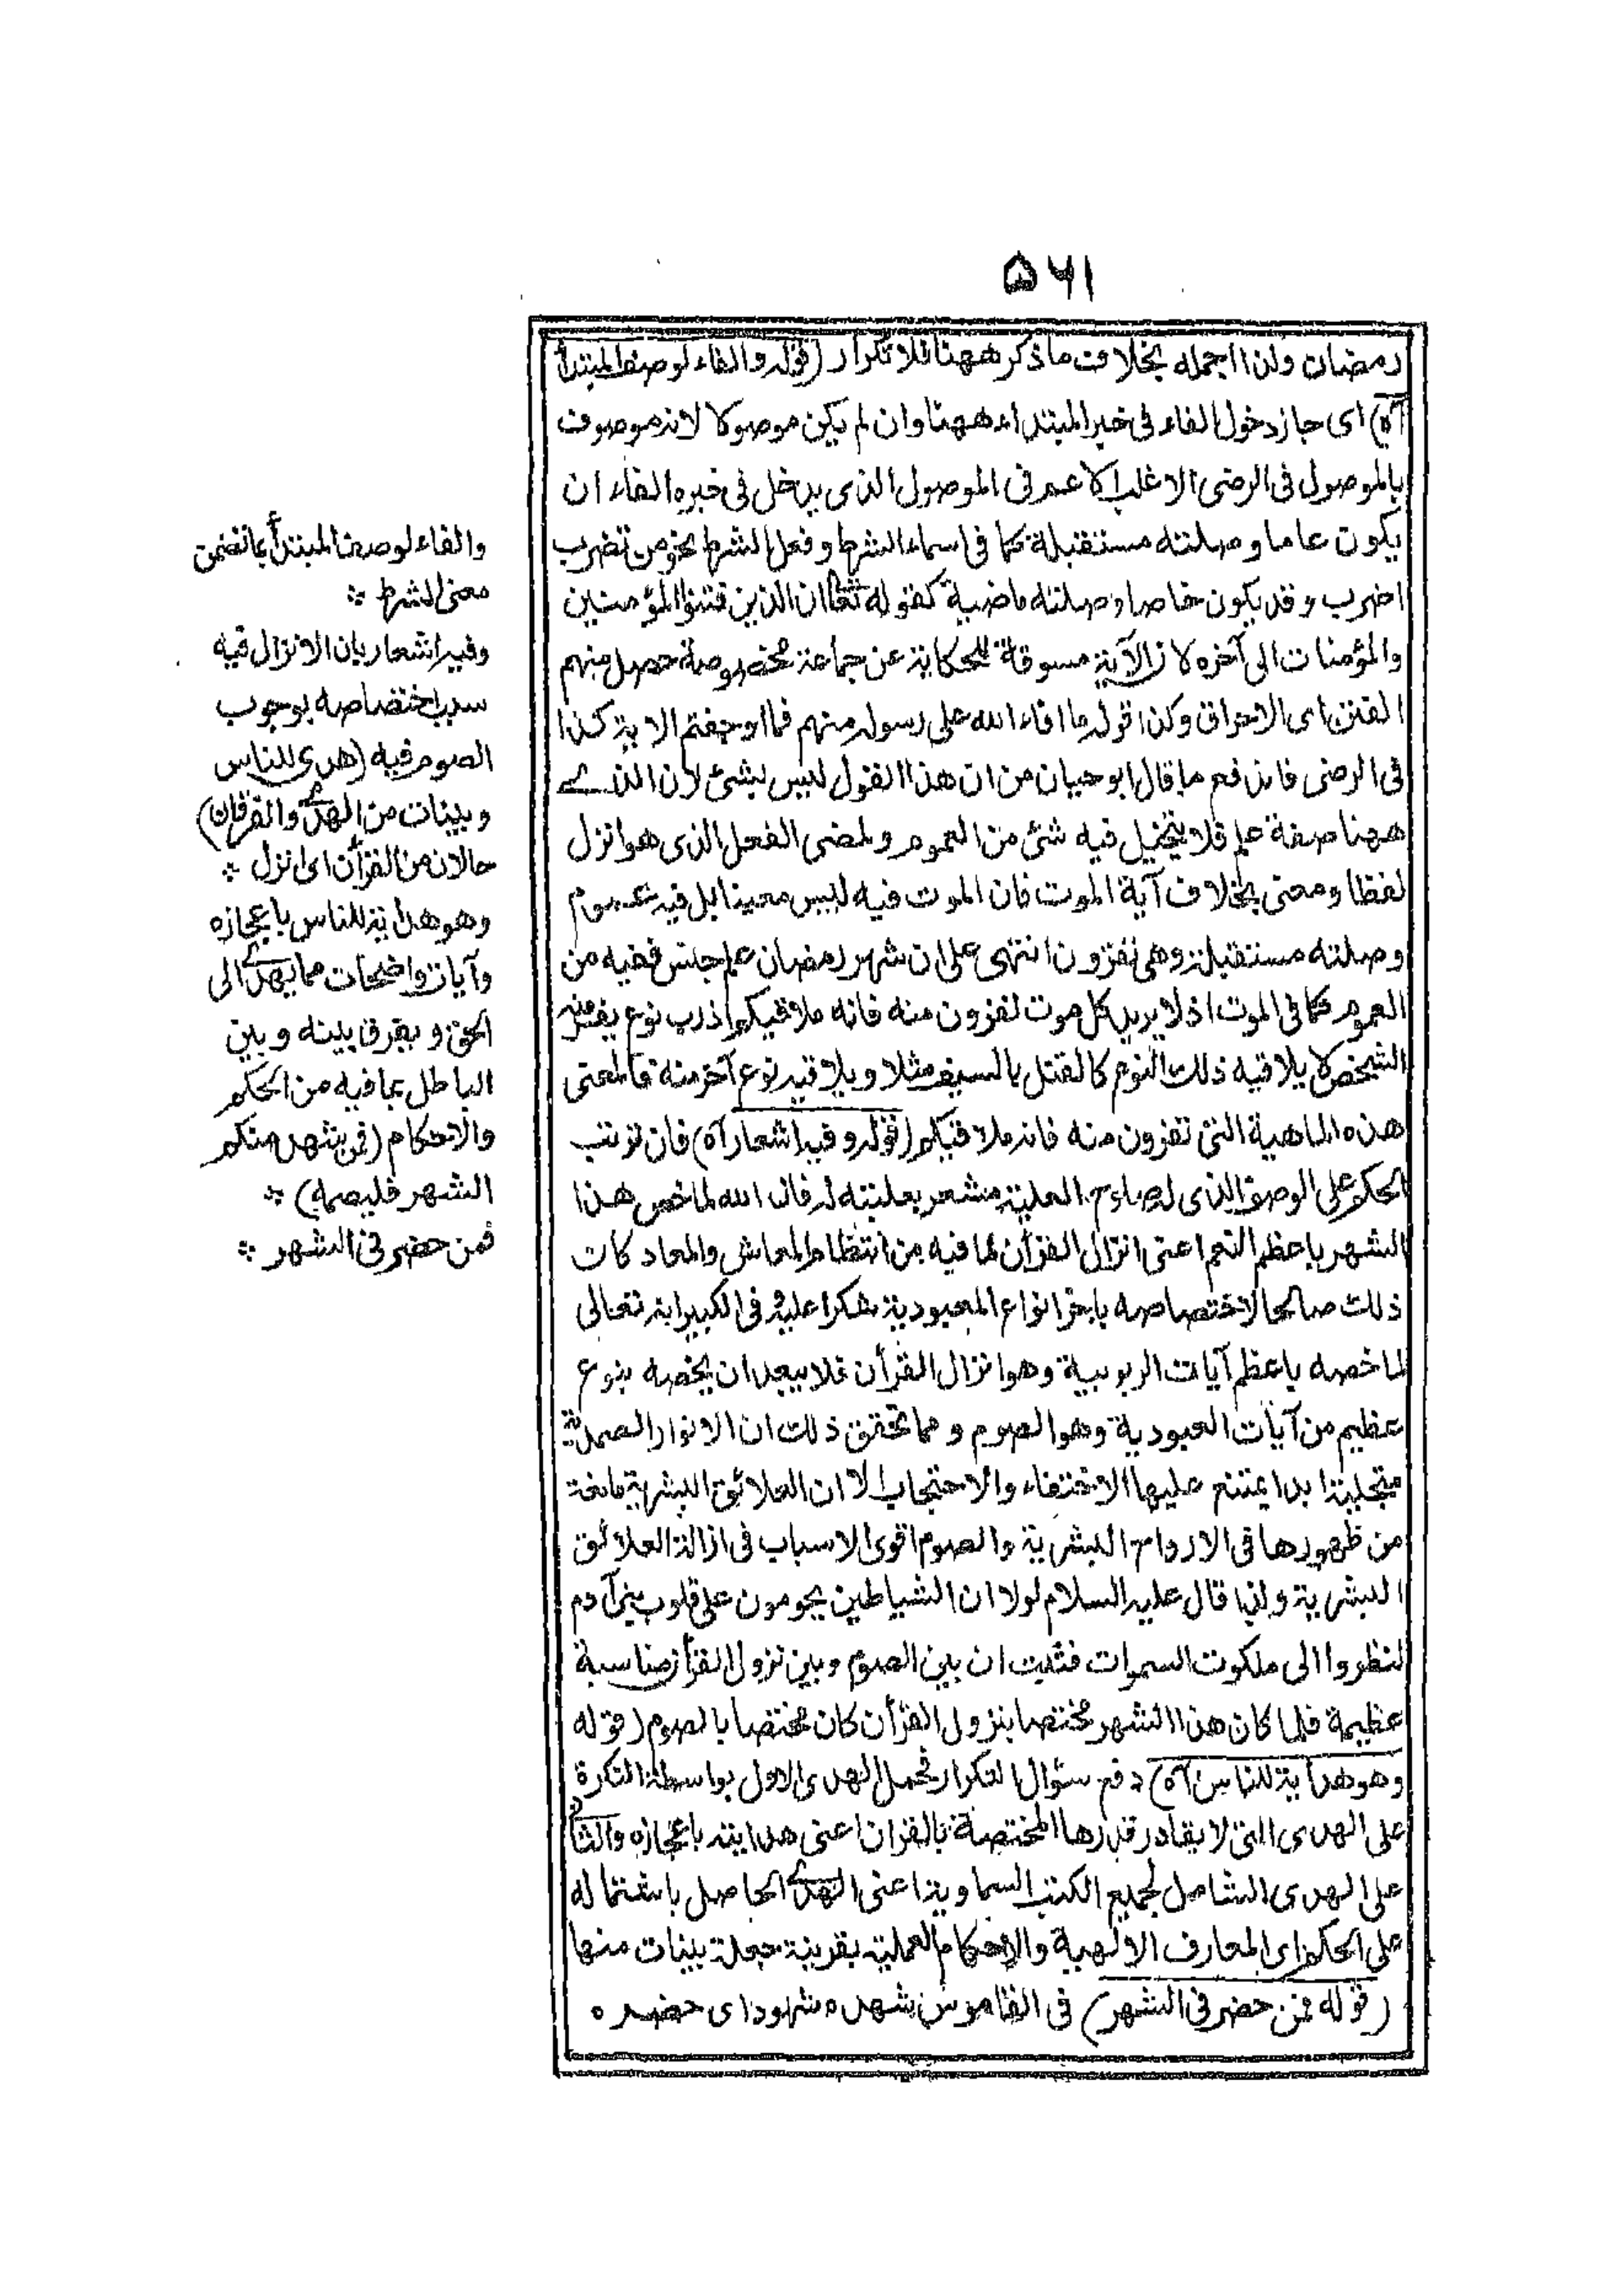 ۵۶۱
رمضان ولذا اجمله بخلاف ما ذكر ههنا فلا تكرار (قوله والفاء لوصف المبتدأ
آه) اى جاز دخول الفاء فى خبر المبتداء ههنا وان لم يكن موصولا لانه موصوف
بالموصول فى الرضى الاغلب الاعم فى الموصول الذى يدخل فى خبره الفاء ان
يكون عاما وصلته مستقبلة كما فى اسماء الشرط وفعل الشرط نحو من تضرب
اضرب وقد يكون خاصا وصلته ماضية كقوله تعا ان الذين فتنوا المؤمنين
والمؤمنات الى آخره لان الآية مسوقة للحكاية عن جماعة مخصوصة حصل منهم
الفتن اى الاحراق وكذا قوله ما افاء الله على رسوله منهم فما اوجفتم الاية كذا
فى الرضى فاندفع ما قال ابو حيان من ان هذا القول ليس بشئ لان الذے
ههنا صفة علم فلا يتخيل فيه شئ من العموم ولمضى الفعل الذى هو انزل
لفظا ومعنى بخلاف آية الموت فان الموت فيه ليس معينا بل فيه عموم
وصلته مستقبلة وهى تفرون انتهى على ان شهر رمضان علم جنس ففيه من
العموم كما فى الموت اذ لا يريد كل موت تفرون منه فانه ملاقيكم اذ رب نوع يفر منه
الشخص لا يلاقيه ذلك النوم كالقتل بالسيف مثلا ويلاقيه نوع آخر منه فالمعنى
هذه الماهية التى تفرون منه فانه ملاقيكم (قوله وفيه اشعار آه) فان ترتب
الحكم على الوصف الذى له صلوح العلية مشعر بعليته له فان الله لما خص هذا
الشهر باعظم النعم اعنى انزال القرأن لما فيه من انتظام المعاش والمعاد كان
ذلك صالحا لاختصاصه با نواع العبودية شكرا عليه وفى الكبير انه تعالى
لما خصه باعظم آيات الربوبية وهو انزال القرأن فلا يبعد ان يخصه بنوع
عظيم من آيات العبودية وهو الصوم ومما يحقق ذلك ان الانوار الصمدية
متجلية ابدا يمتنع عليها الاختفاء والاحتجاب الا ان العلائق البشرية مانعة
من ظهورها فى الارواح البشرية والصوم اقوى الاسباب فى ازالة العلائق
البشرية ولذا قال عليه السلام لولا ان الشياطين يحومون على قلوب بنى آدم
لنظروا الى ملكوت السموات فثبت ان بين الصوم وبين نزول القرأن مناسبة
عظيمة فلما كان هذا الشهر مختصا بنزول القرأن كان مختصا بالصوم (قوله
وهو هداية للناس آه) دفع سؤال التكرار بحمل الهدى الاول بواسطة النكرة
على الهدى التى لا يقادر قدرها المختصة بالقران اعنى هدايته باعجازه والثانى
على الهدى الشامل لجميع الكتب السماوية اعنى الهدے الحاصل باشتماله
على الحكم اى المعارف الالهية والاحكام العملية بقرينة جعله بينات منها
(قوله فمن حضر فى الشهر) فى القاموس شهده شهودا اى حضره
والفاء لوصف المبتدأ بما تضمن
معنى الشرط ؞
وفيه اشعار بان الانزال فيه
سبب اختصاصه بوجوب
الصوم فيه (هدى للناس
وبينات من الهدے والفرقان)
حالان من القرأن اى انزل ؞
وهو هداية للناس باعجازه
وآيات واضحات مما يهدے الى
الحق ويفرق بينه وبين
الباطل بما فيه من الحكم
والاحكام (فمن شهد منكم
الشهر فليصمه) ؞
فمن حضر فى الشهر ؞